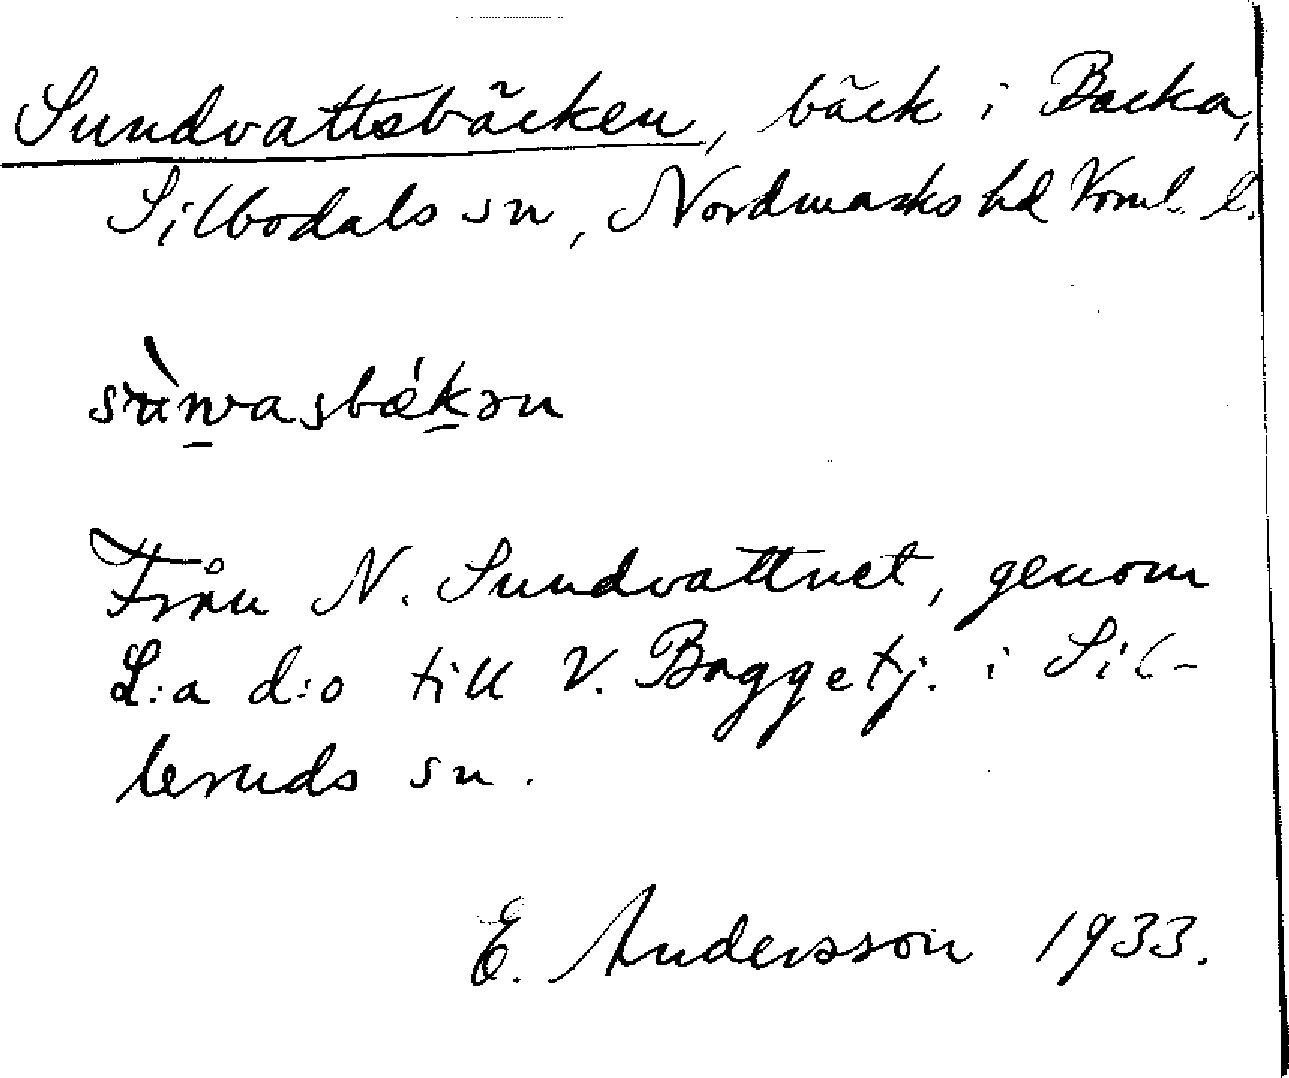 Sundvattsbäcken, bäck i Backa,
Silbodals sn, Nordmarks hd Vrml. l.
Från N. Sundvattnet, genom
L:a d:o till V. Baggetj. i Sil-
leruds sn.
E. Andersson 1933.